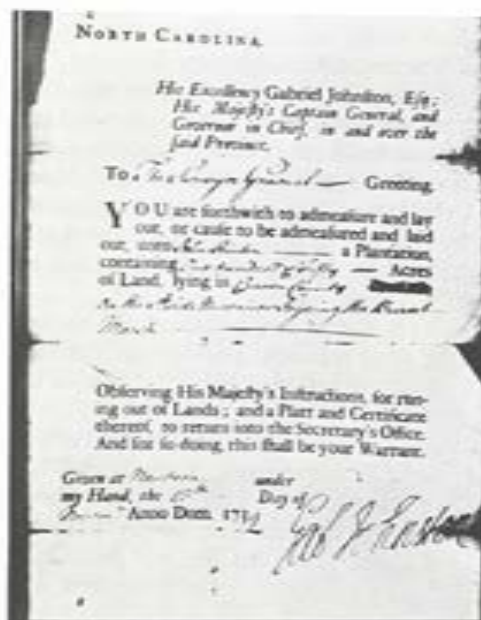 NORTH CAROLINA.
His Excellency Gabriel Johnston, Esq;
His Majesty's Captain General, and
Governor in Chief, in and over the
said Province.
To The Surveyor General Greeting.
YOU are forthwith to admeasure and lay
out, or cause to be admeasured and laid
out, unto a Plantation,
containing Acres
of Land, lying in County
on the
Observing His Majesty's Instructions, for run-
ing out of Lands; and a Platt and Certificate
thereof, to return into the Secretary's Office.
And for so doing, this shall be your Warrant.
Given at Newbern under
my Hand, the Day of
Anno Dom. 17
Gab Johnston